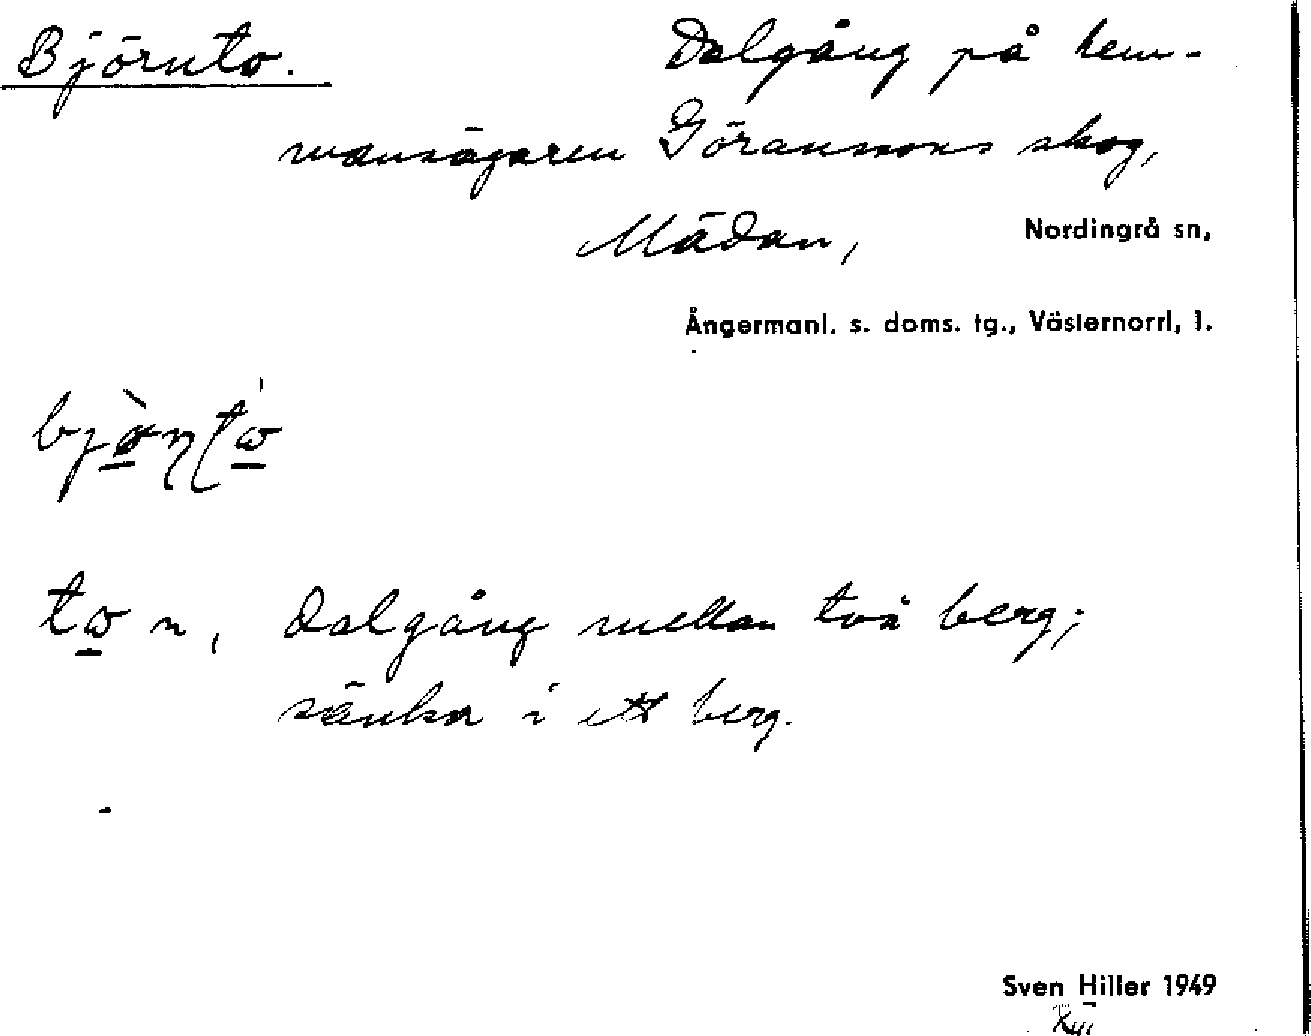 Björnto. Dalgång på hem-
mansägaren Göranssons skog,
Mädan, Nordingrå sn,
Ångermanl. s. doms. tg., Västernorrl, l.
to n, Dalgång mellan två berg;
sänka i ett berg.
Sven Hiller 1949